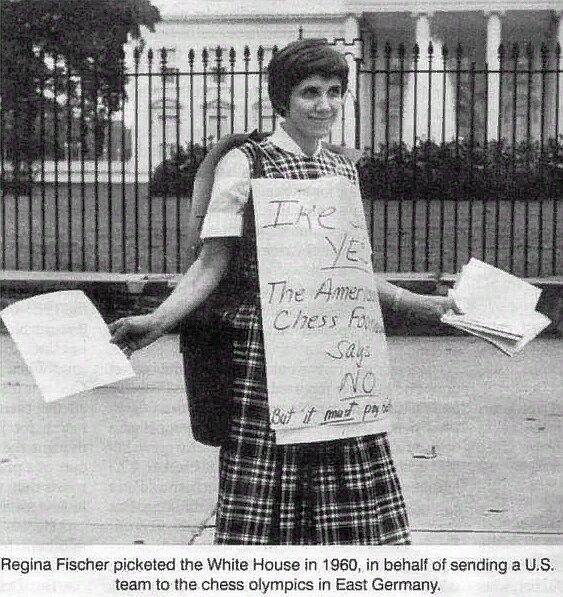 Ike
YES
The American
Chess Foun
Says
NO
But it must pay
Regina Fischer picketed the White House in 1960, in behalf of sending a U.S.
team to the chess olympics in East Germany.